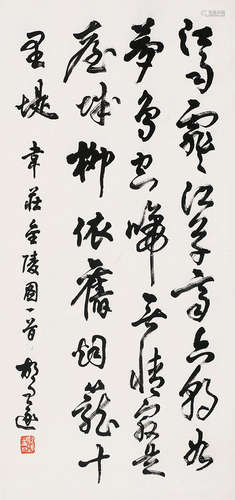 江雨霏霏江草齊六朝如
夢鳥空啼無情最是
臺城柳依舊烟籠十
里堤 韋莊金陵圖一首 胡問遂